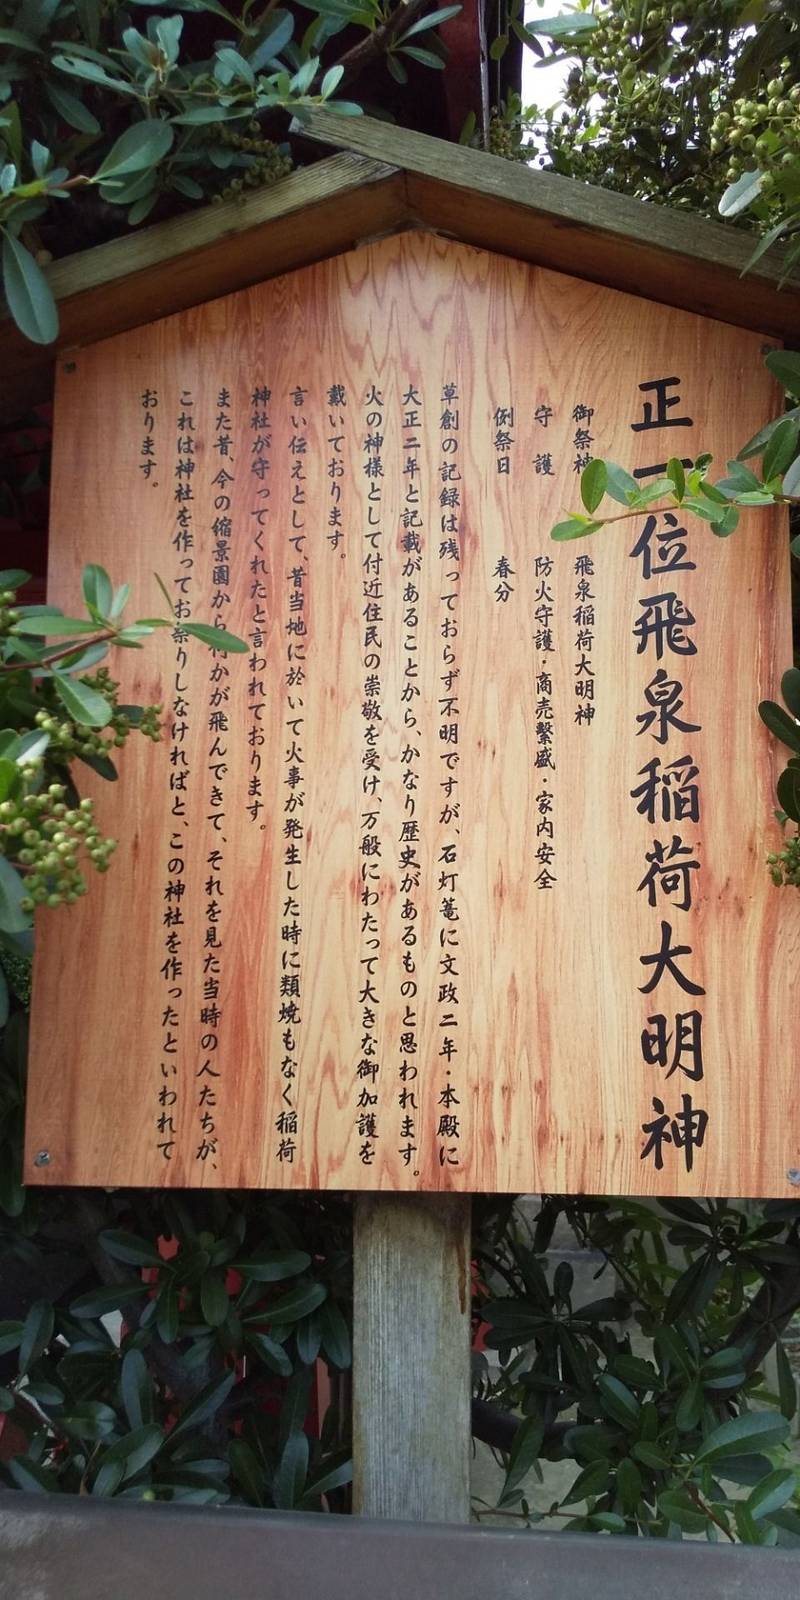 正一位飛泉稲荷大明神
御祭神 飛泉稲荷大明神
守 護 防火守護・商売繫盛・家内安全
例祭日 春分
草創の記録は残っておらず不明ですが、石灯篭に文政二年・本殿に
大正二年と記載があることから、かなり歴史があるものと思われます。
火の神様として付近住民の崇敬を受け、万般にわたって大きな御加護を
戴いております。
言い伝えとして、昔当地に於いて火事が発生した時に類焼もなく稲荷
神社が守ってくれたと言われております。
また昔、今の縮景園から何かが飛んできて、それを見た当時の人たちが、
これは神社を作ってお祭りしなければと、この神社を作ったといわれて
おります。